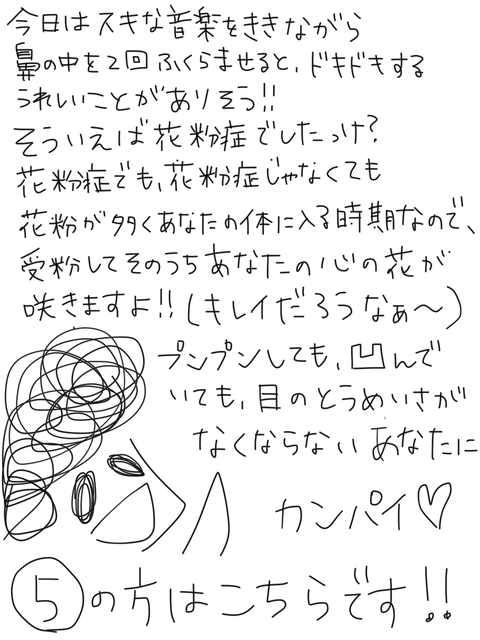 今日はスキな音楽をききながら
鼻の中を2回ふくらませると、ドキドキする
うれしいことがありそう!!
そういえば花粉症でしたっけ?
花粉症でも、花粉症じゃなくても
花粉が多くあなたの体に入る時期なので、
受粉してそのうちあなたの心の花が
咲きますよ!!(キレイだろうなぁ〜)
プンプンしても、凹んで
いても、目のとうめいさが
なくならないあなたに
カンパイ♡
⑤の方はこちらです!!